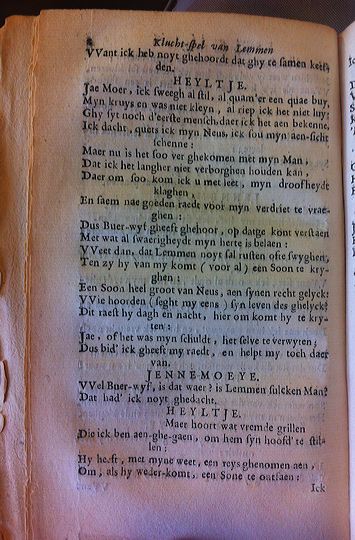 8 Klucht-spel van Lemmen
VVant ick heb noyt ghehoordt dat ghy te samen keef-
den.
HEYLTJE.
Jae Moer, ick sweegh al stil, al quam'er een quae buy,
Myn kruys en was niet kleyn, al riep ick het niet luy:
Ghy syt noch d'eerste mensch, daer ick het aen bekenne,
Ick dacht, quets ick myn Neus, ick sou myn aen-sicht
schenne:
Maer nu is het soo ver ghekomen met myn Man,
Dat ick het langher niet verborghen houden kan,
Daer om soo kom ick u met leet, myn droefheydt
klaghen,
En saem nae goeden raedt voor myn verdriet te vrae-
ghen:
Dus Buer-wyf gheeft ghehoor, op datge kont verstaen
Met wat al swaerigheydt myn herte is belaen:
VVeet dan, dat Lemmen noyt sal rusten ofte swyghen,
Ten zy hy van my komt (voor al) een Soon te kry-
ghen:
Een Soon heel groot van Neus, aen synen recht gelyck:
VVie hoorden (seght my eens) syn leven des ghelyck?
Dit raest hy dagh en nacht, hier om komt hy te kry-
ten:
Jae, of het was myn schuldt, het selve te verwyten;
Dus bid' ick gheeft my raedt, en helpt my toch daer
van.
JENNEMOEYE.
VVel Buer-wyf, is dat waer? is Lemmen sulcken Man?
Dat had' ick noyt ghedacht.
HEYLTJE.
Maer hoort wat vremde grillen
Die ick ben aen-ghe-gaen, om hem syn hoofd' te stil-
len:
Hy heeft, met myne weet, een reys ghenomen aen,
Om, als hy weder-komt, een Sone te ontfaen:
Ick